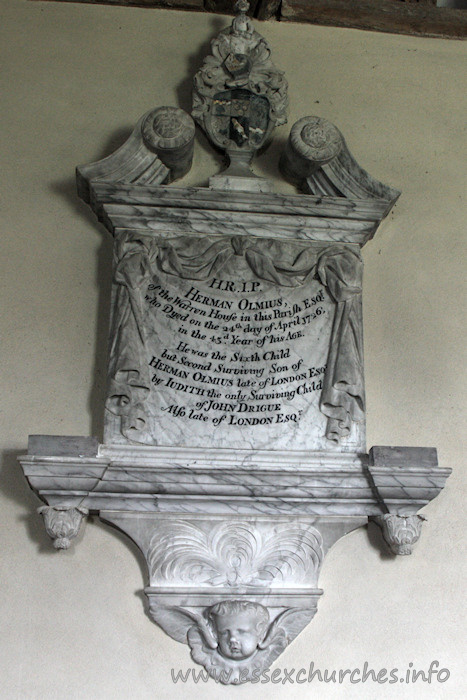 H.R.I.P.
HERMAN OLMIUS,
of the Warren House in this Parish ESQ.R
who Dyed on the 24th day of April
in the 45.d Year of his AGE.
He was the Sixth Child
but Second Surviving Son of
HERMAN OLMIUS late of LONDON ESQ.R
by IUDITH the only Surviving Child
of JOHN DRIGUE
Also late of LONDON ESQ.R
www.essexchurches.info